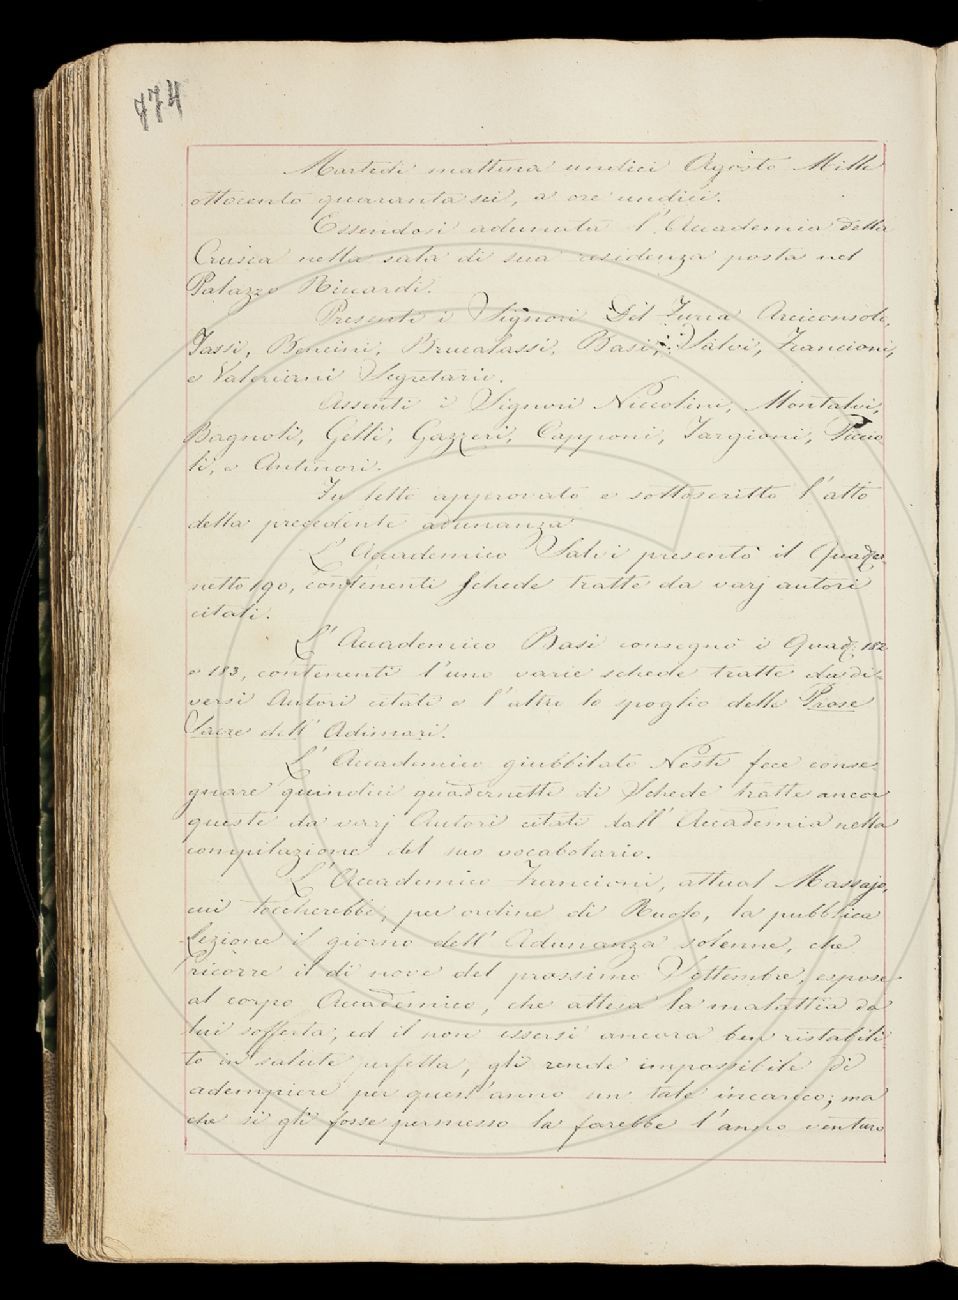 774
Martedì mattina undici Agosto Mille
ottocento quaranta sei, a ore undici.
Essendosi adunata l'Accademia della
Crusca nella sala di sua residenza posta nel
Palazzo Riccardi.
Presenti i Signori Del Furia Arciconsolo,
Tassi, Bencini, Brucalassi, Basi, Salvi, Francioni,
e Valeriani Segretario.
Assenti i Signori Niccolini, Montalvi,
Bagnoli, Gelli, Gazzeri, Capponi, Targioni, Puccio
li, e Antinori.
Fu letto approvato e sottoscritto l'atto
della precedente adunanza
L'Accademico Salvi presentò il Quader
netto 190, contenente Schede tratte da varj autori
citati.
L'Accademico Basi consegnò i Quad. 182
e 183, contenenti l'uno varie schede tratte da di-
versi Autori citati e l'altro lo spoglio delle Prose
Sacre dell'Adimari.
L'Accademico giubbilato Nesti fece conse
gnare quindici quadernetti di Schede tratte ancor
queste da varj Autori citati dall'Accademia nella
compilazione del suo vocabolario.
L'Accademico Francioni, attual Massajo,
cui toccherebbe, per ordine di Ruolo, la pubblica
Lezione il giorno dell'Adunanza solenne, che
ricorre il dì nove del prossimo Settembre, espose
al corpo Accademico, che attesa la malattia da
lui sofferta, ed il non essersi ancora ben ristabili
to in salute perfetta, gli rende impossibile di
adempiere per quest'anno un tale incarico; ma
che si gli fosse permesso la farebbe l'anno venturo